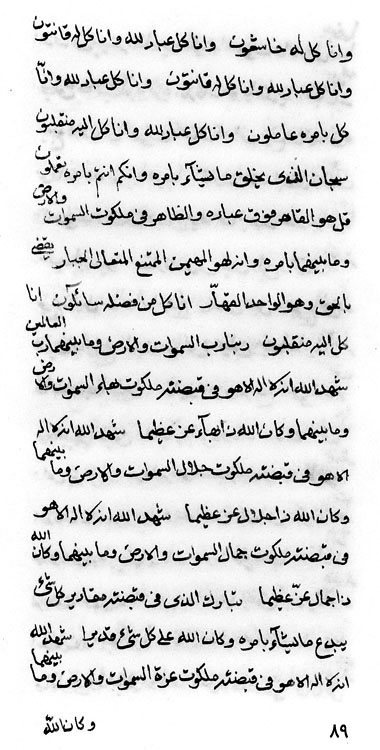 وانا كل له خاشعون وانا كل عباد لله وانا كل له قانتون
وانا كل عباد لله وانا كل له قانتون وانا كل عباد لله وانا
كل بامره عاملون وانا كل عباد لله وانا كل اليه منقلبون
سبحان الذى يخلق ما يشآء بامره وانكم انتم بامره تعملون
قل هو القاهر فوق عباده والظاهر فى ملكوت السموات والارض
وما بينهما بامره وانه لهو المهيمن الممتنع المتعالى الجبار يقضى
بالحق وهو الواحد القهآر انا كل من فضله سآئلون انا
كل اليه منقلبون ربنا رب السموات والارض وما بينهما رب العالمين
شهد الله انه لا اله الا هو فى قبضته ملكوت بهاء السموات والارض
وما بينهما وكان الله ذا بهآء عز عظيما شهد الله انه لا اله
الا هو فى قبضته ملكوت جلال السموات والارض وما بينهما
وكان الله ذا جلال عز عظيما شهد الله انه لا اله الا هو
فى قبضته ملكوت جمال السموات والارض وما بينهما وكان الله
ذا جمال عز عظيما تبارك الذى فى قبضته مقادير كل شئ
يبدع ما يشآء بامره وكان الله على كل شئ قديرا شهد الله
انه لا اله الا هو فى قبضته ملكوت عزة السموات والارض وما بينهما
وكان الله
٨٩